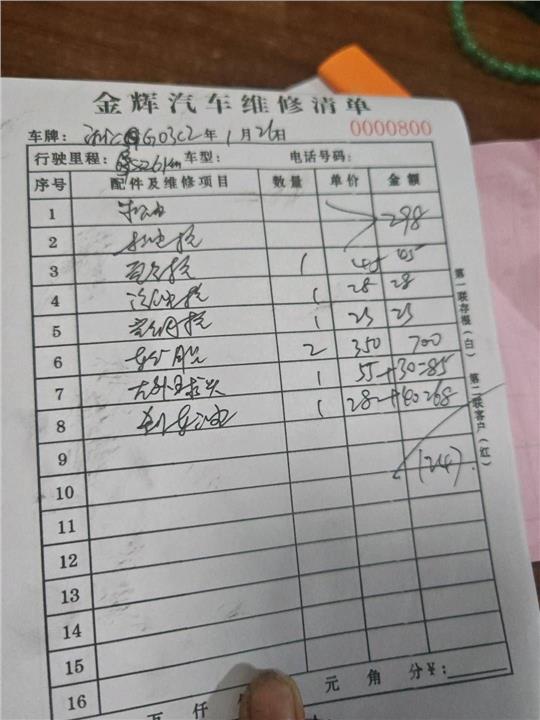 金辉汽车维修清单
车牌： G03C2 年 1 月 26 日 0000800
行驶里程： 5261km 车型： 电话号码：
序号 配件及维修项目 数量 单价 金额
1 机油 298
2 机油格
3 空气格 1 45 45
4 汽油格 1 28 28
5 空调格 1 25 25
6 2 350 700
7 左外球头 1 55 +30=85
8 刹车油 1 28 +40
9
10
11
12
13
14
15
16
第一联存根（白） 第二联客户（红）
万 仟 元 角 分 ¥：